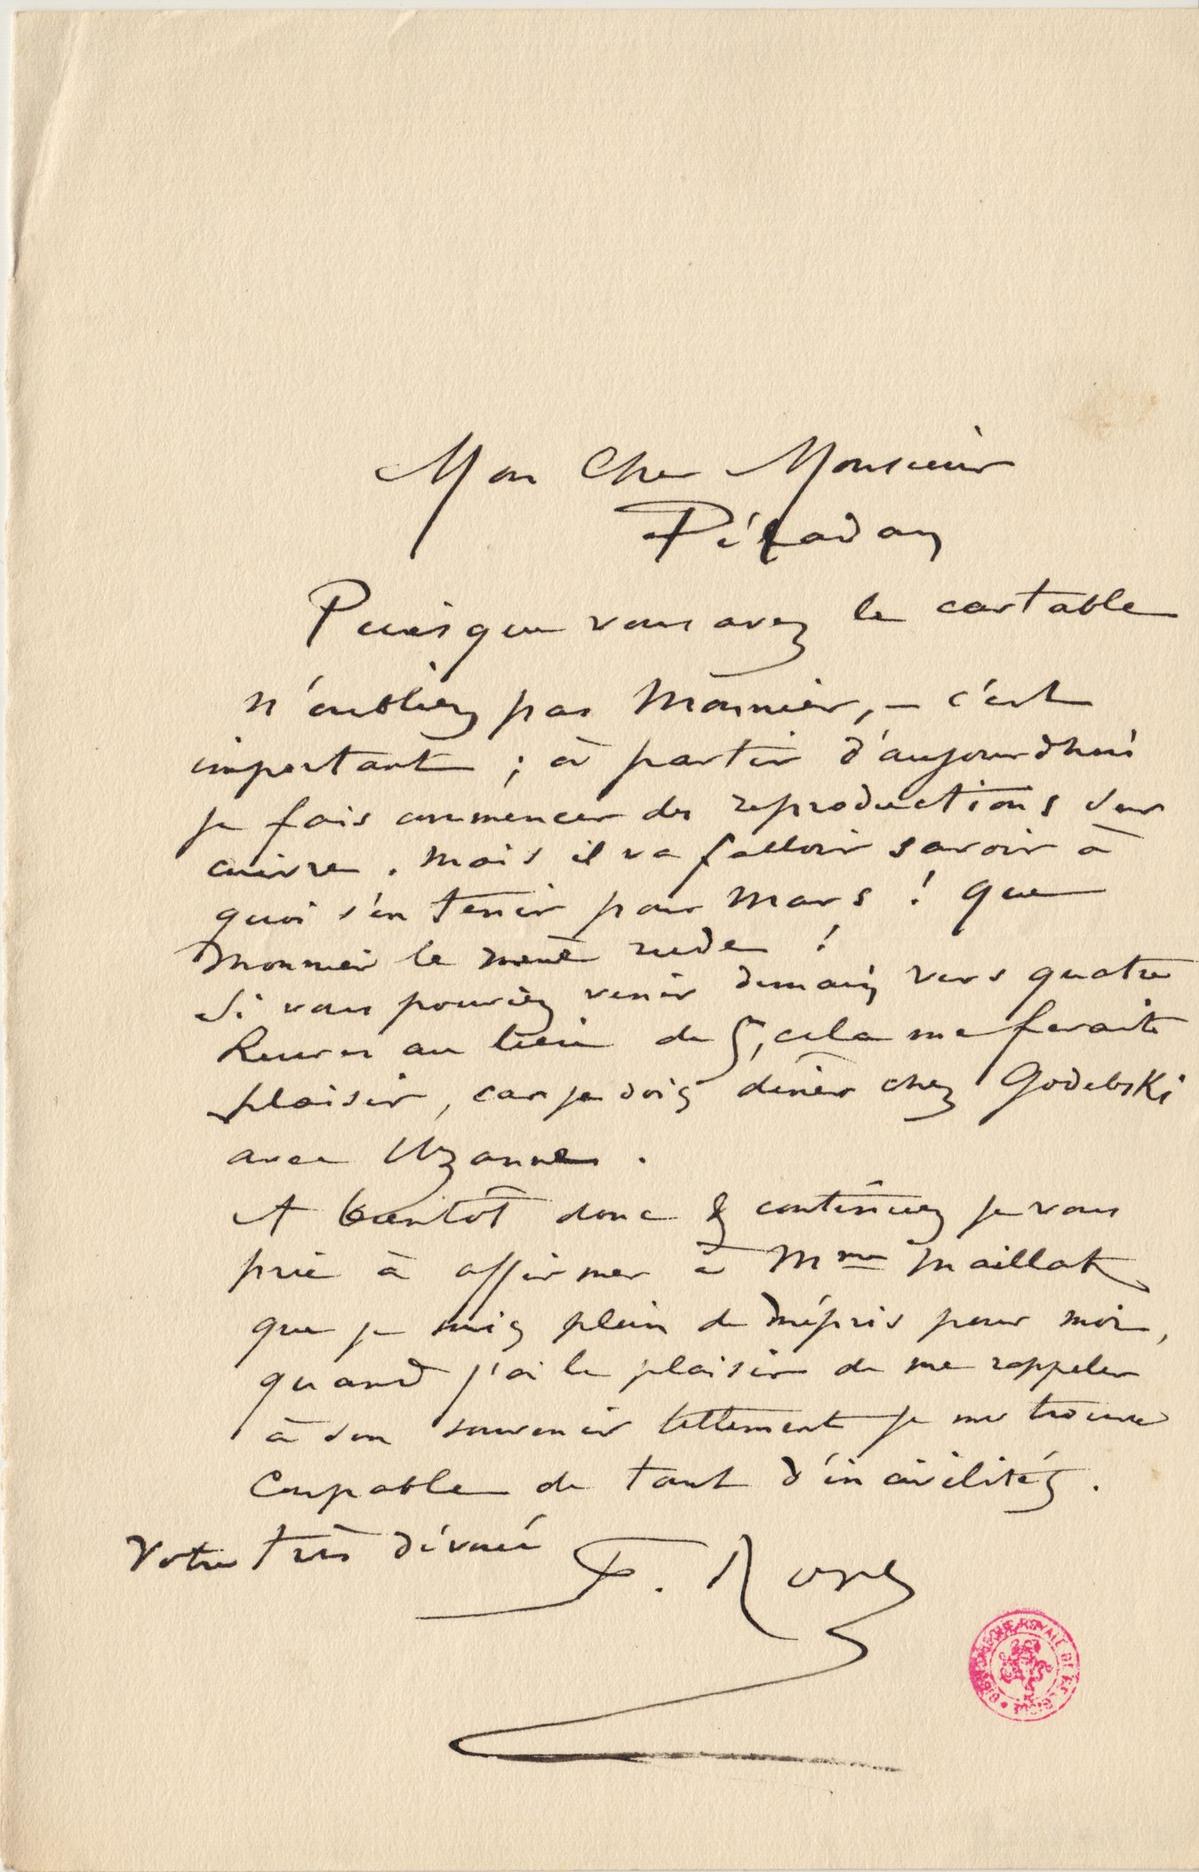 Mon Cher Monsieur
Péladan
Puisque vous avez le cartable
n'oubliez pas Monnier, – c'est
important ; à partir d'aujourdhui
je fais commencer des reproductions sur
cuivre. Mais il va falloir savoir à
quoi s'en tenir pour Mars ! que
Monnier le mène rude !
Si vous pouviez venir demain vers quatre
heures au lieu de 5, cela me ferait
plaisir, car je dois dîner chez Godebski
avec Uzanne.
A bientôt donc & continuez je vous
prie à affirmer à Mme Maillat
que je suis plein de mépris pour moi,
quand j'ai le plaisir de me rappeler
à son souvenir tellement je me trouve
Coupable de tant d'incivilités.
Votre très dévoué
F. Rops
BIBLIOTHÈQUE ROYALE DE BELGIQUE